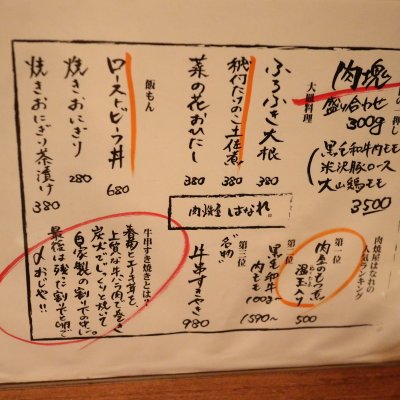 肉塊
盛り合わせ
300g
黒毛和牛内モモ
米沢豚ロース
大山鶏モモ
3500
大皿料理
ふろふき大根
380
秘付たけのこ土佐煮
380
菜の花おひたし
380
飯もん
ローストビーフ丼
680
焼きおにぎり
280
焼きおにぎり茶漬け
380
肉焼屋はなれの
人気ランキング
第一位
肉豆のもつ煮
温玉入り
500
第二位
黒毛和牛
内モモ
100g
1590〜
第三位
名物
牛串すきやき
980
肉焼屋 はなれ。
牛串すき焼きとは!
春菊とエノキ茸を、
上質な牛バラ肉で巻き
炭火でじっくりと焼いて
自家製の割り下の中に。
最後は残った割り下と卵で
〆おじや!!